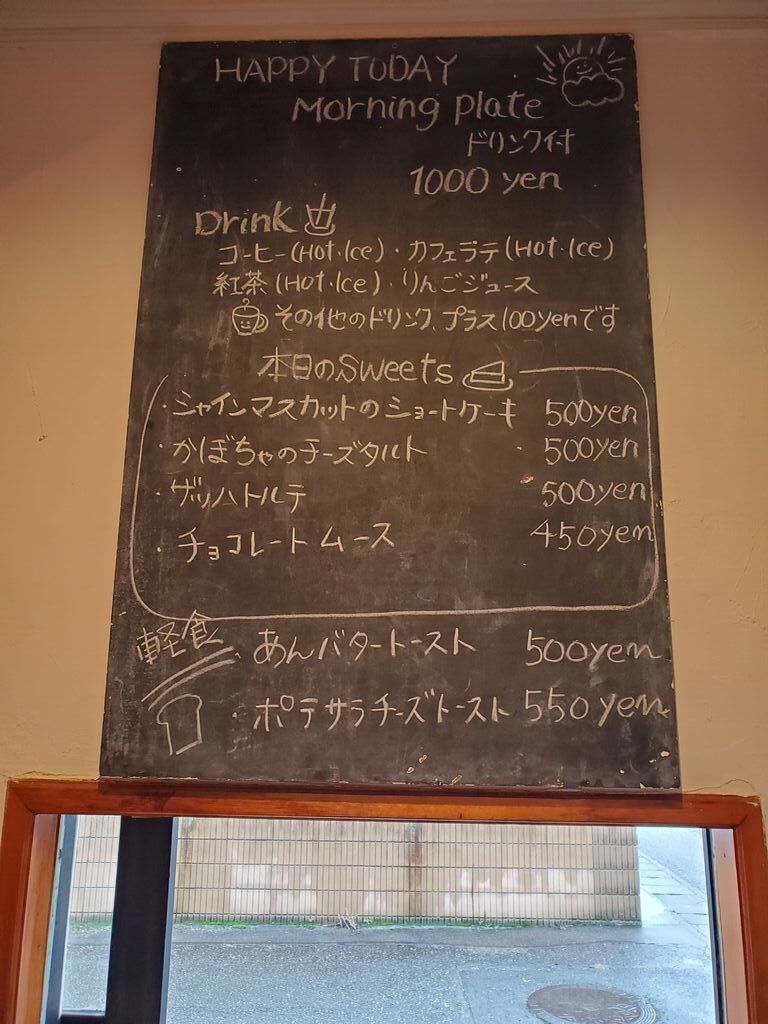 HAPPY TODAY
Morning plate
ドリンク付
1000 yen
Drink
コーヒー(Hot・Ice)・カフェラテ(Hot・Ice)
紅茶(Hot・Ice)・りんごジュース
その他のドリンク、プラス100yenです
本日のSweets
・シャインマスカットのショートケーキ 500yen
・かぼちゃのチーズタルト 500yen
・ザッハトルテ 500yen
・チョコレートムース 450yen
軽食
あんバタートースト 500yen
・ポテサラチーズトースト 550yen